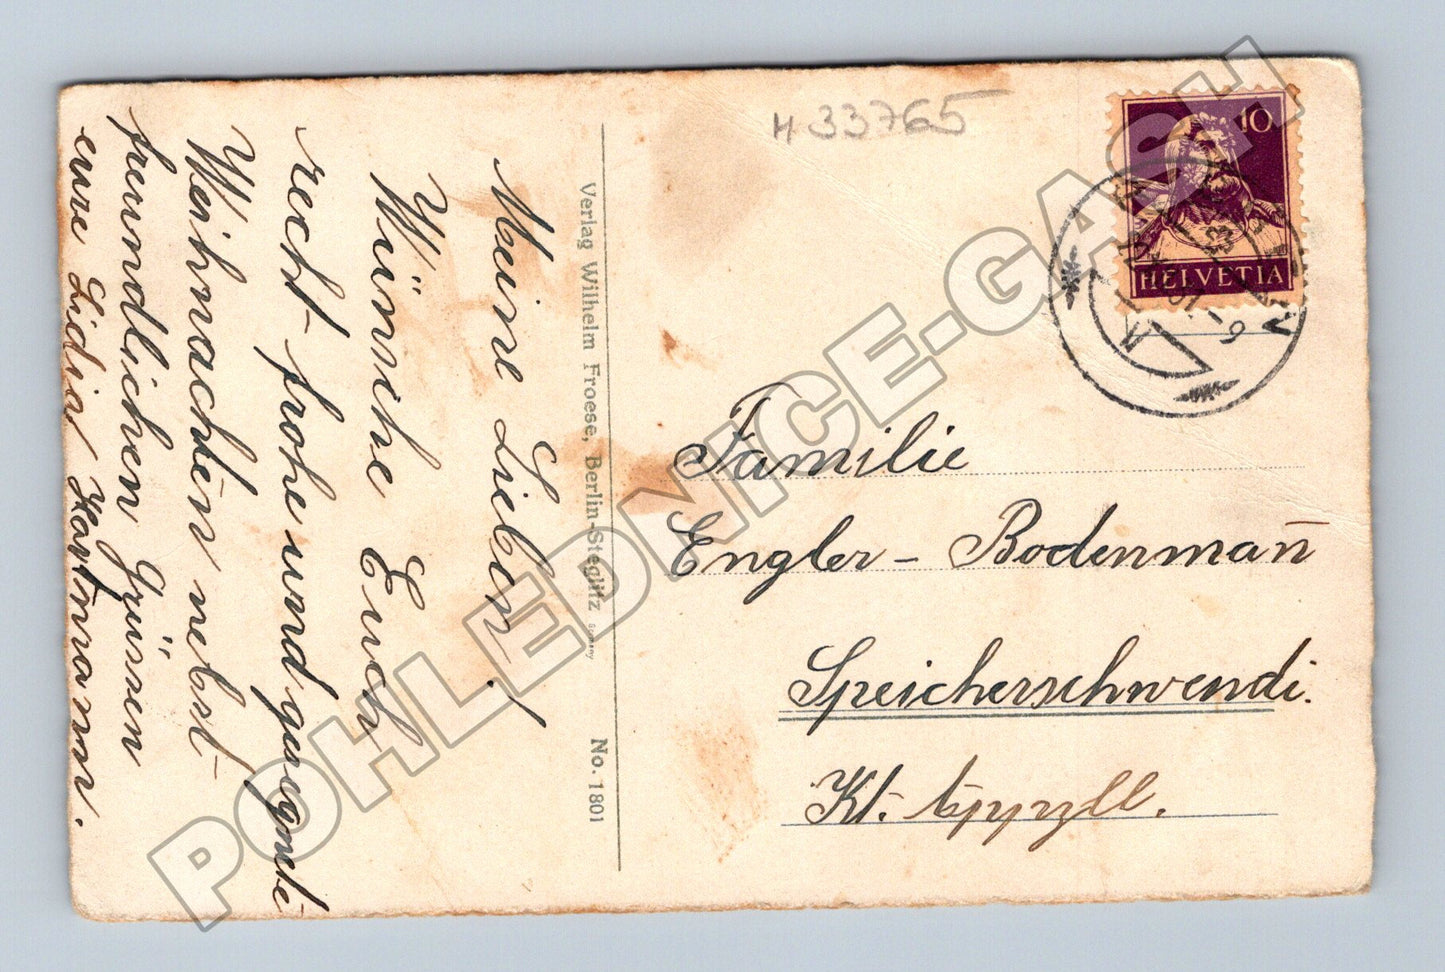 Meine Lieben!
Wünsche Euch
recht frohe und gesegnete
Weihnachten nebst
freundlichen Grüssen
eure Lidia Hartmann.
Verlag Wilhelm Froese, Berlin-Steglitz Germany No. 1801
H 33765
10
HELVETIA
Familie
Engler - Bodenman̄
Speicherschwendi.
Kt. Appzll.
POHLEDNICE-GASH